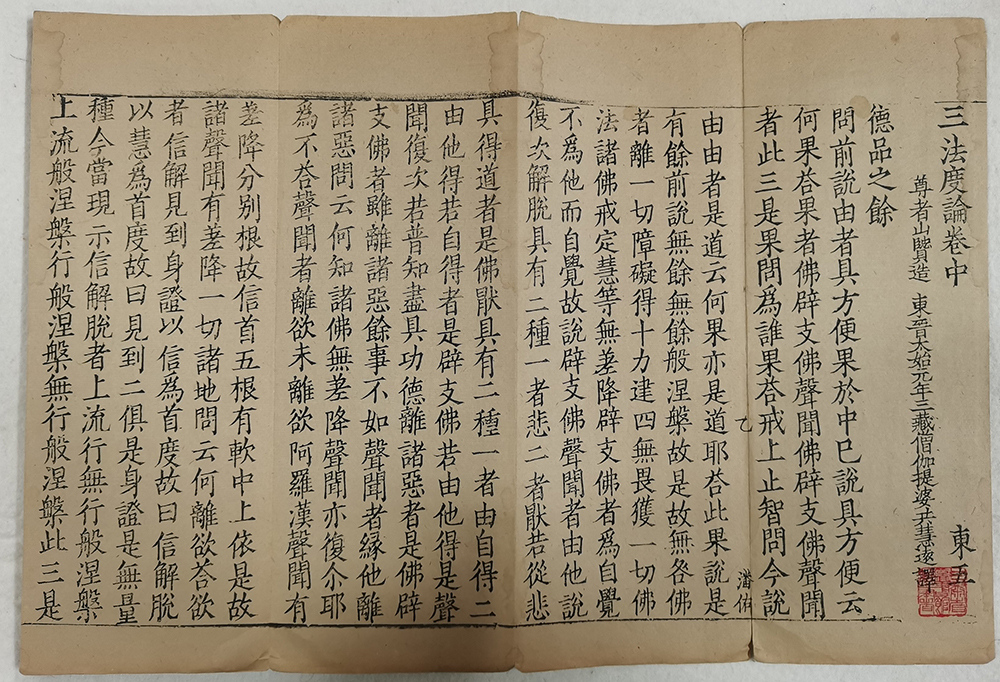 三法度論卷中 東五
尊者山賢造 東晉太始元年三藏僧伽提婆共慧遠譯
德品之餘
問前說由者具方便果於中巳說具方便云
何果荅果者佛辟支佛聲聞佛辟支佛聲聞
者此三是果問爲誰果荅戒上止智問今說
乙 潘佑
由由者是道云何果亦是道耶荅此果說是
有餘前說無餘無餘般涅槃故是故無咎佛
者離一切障礙得十力建四無畏獲一切佛
法諸佛戒定慧等無差降辟支佛者爲自覺
不爲他而自覺故說辟支佛聲聞者由他說
復次解脫具有二種一者悲二者猒若從悲
具得道者是佛猒具有二種一者由自得二
由他得若自得者是辟支佛若由他得是聲
聞復次若普知盡具功德離諸惡者是佛辟
支佛者雖離諸惡餘事不如聲聞者緣他離
諸惡問云何知諸佛無差降聲聞亦復尒耶
爲不荅聲聞者離欲未離欲阿羅漢聲聞有
差降分别根故信首五根有軟中上依是故
諸聲聞有差降一切諸地問云何離欲荅欲
者信解見到身證以信爲首度故曰信解脫
以慧爲首度故曰見到二俱是身證是無量
種今當現示信解脫者上流行無行般涅槃
上流般涅槃行般涅槃無行般涅槃此三是